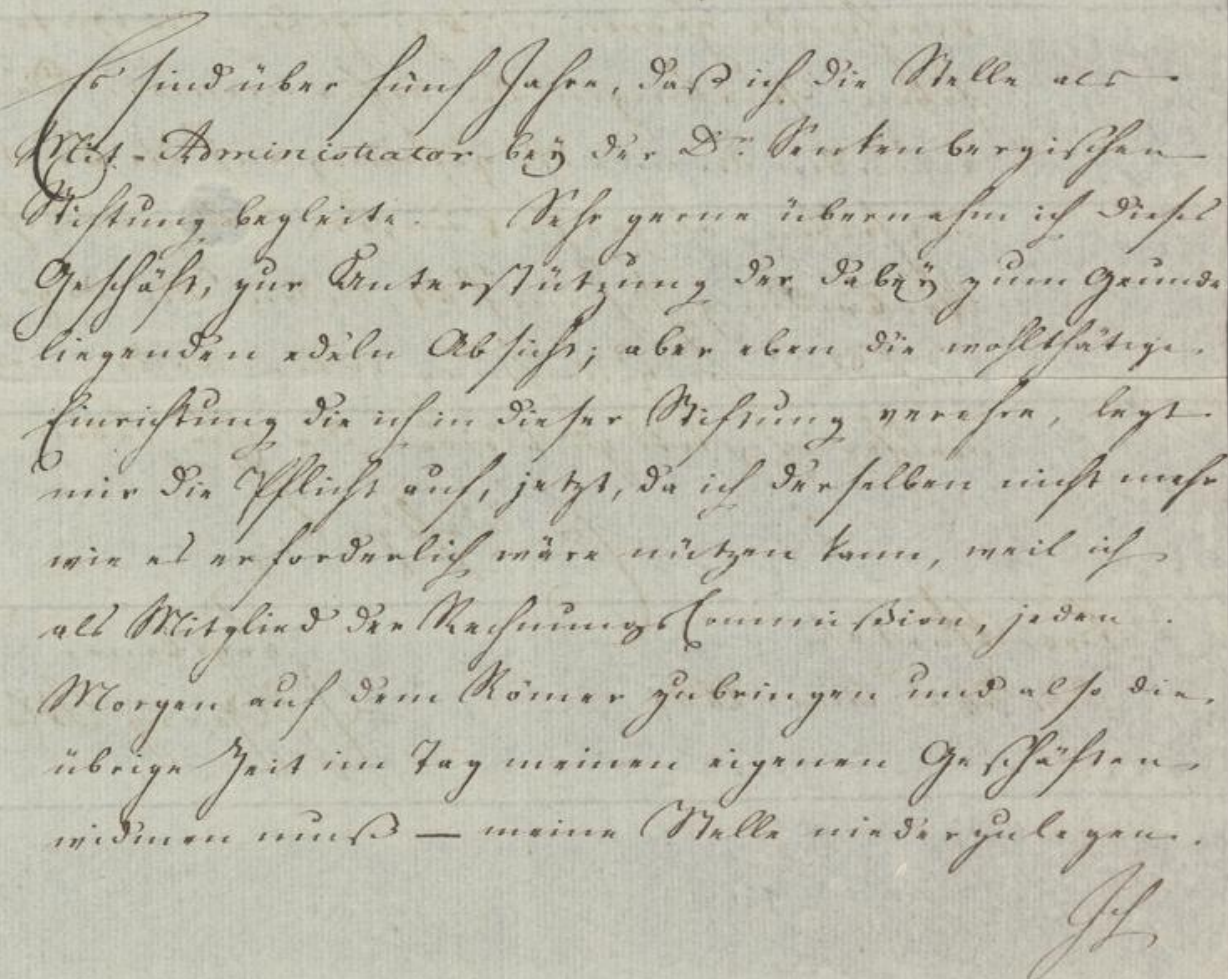 Es sind über fünf Jahre, daß ich die Stelle als
Mit-Administrator bey der Dr. Senkenbergischen
Stiftung begleite. Sehr gerne übernahm ich dieses
Geschäft, zur Unterstützung der dabey zum Grunde
liegenden edeln Absicht; aber eben die wohlthätige
Einrichtung die ich in dieser Stiftung verehre, legt
mir die Pflicht auf, jetzt, da ich derselben nicht mehr
wie es erforderlich wäre nützen kann, weil ich
als Mitglied der RechnungsCommißion, jeden
Morgen auf dem Römer zubringen und also die
übrige Zeit im Tag meinen eigenen Geschäften
widmen muß — meine Stelle niederzulegen.
Ich